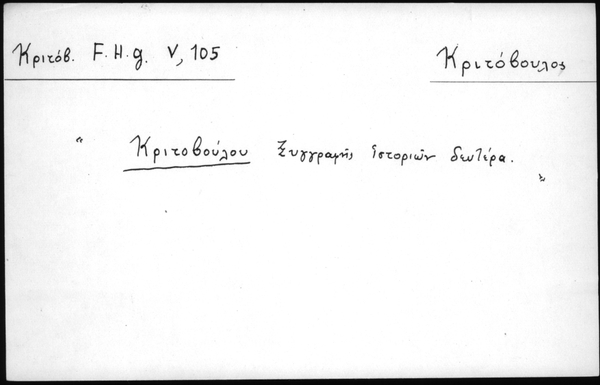 Κριτόβ. F.H.g. V, 105
Κριτόβουλος
" Κριτοβούλου Ξυγγραφῆς ἱστοριῶν δευτέρα. "